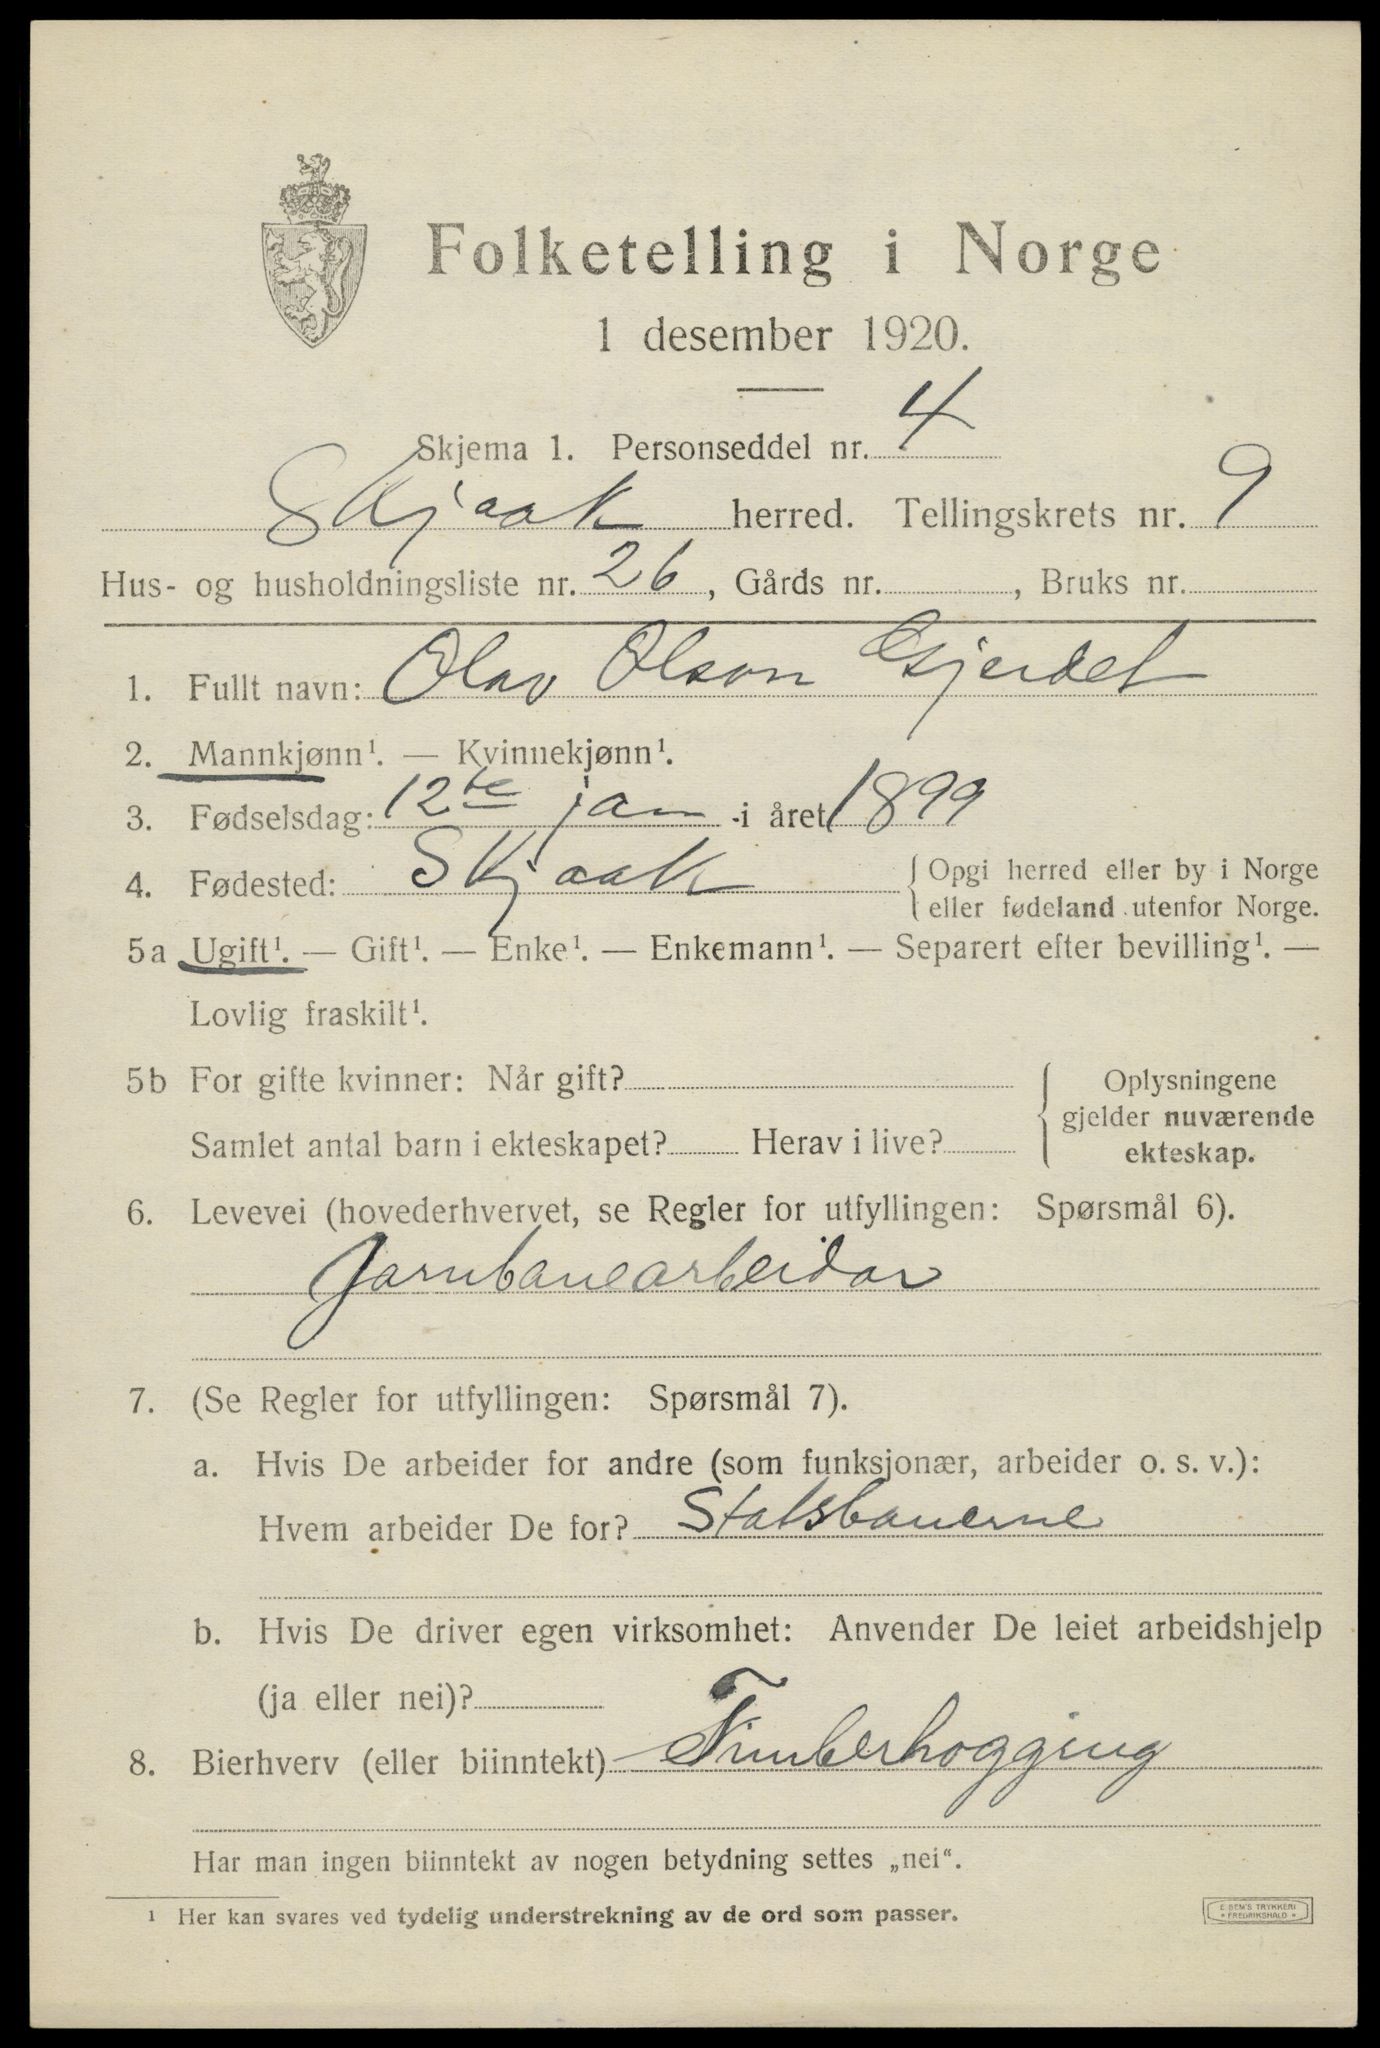 Folketelling i Norge
1 desember 1920.
Skjema 1. Personseddel nr. 4
Skjaak herred. Tellingskrets nr. 9
Hus- og husholdningsliste nr. 26, Gårds nr. , Bruks nr.
1. Fullt navn: Olav Olson Gjerdet
2. Mannkjønn¹. — Kvinnekjønn¹.
3. Fødselsdag: 12te jan i året 1899
4. Fødested: Skjaak { Opgi herred eller by i Norge
eller fødeland utenfor Norge.
5a Ugift¹. — Gift¹. — Enke¹. — Enkemann¹. — Separert efter bevilling¹. —
Lovlig fraskilt¹.
5b For gifte kvinner: Når gift? { Oplysningene
gjelder nuværende
Samlet antal barn i ekteskapet? Herav i live? ekteskap.
6. Levevei (hovederhvervet, se Regler for utfyllingen: Spørsmål 6).
Jarnbanearbeidar
7. (Se Regler for utfyllingen: Spørsmål 7).
a. Hvis De arbeider for andre (som funksjonær, arbeider o. s. v.):
Hvem arbeider De for? Statsbanerne
b. Hvis De driver egen virksomhet: Anvender De leiet arbeidshjelp
(ja eller nei)?
8. Bierhverv (eller biinntekt) Timberhogging
Har man ingen biinntekt av nogen betydning settes „nei“.
¹ Her kan svares ved tydelig understrekning av de ord som passer.
E. SEM'S TRYKKERI
* FREDRIKSHALD *